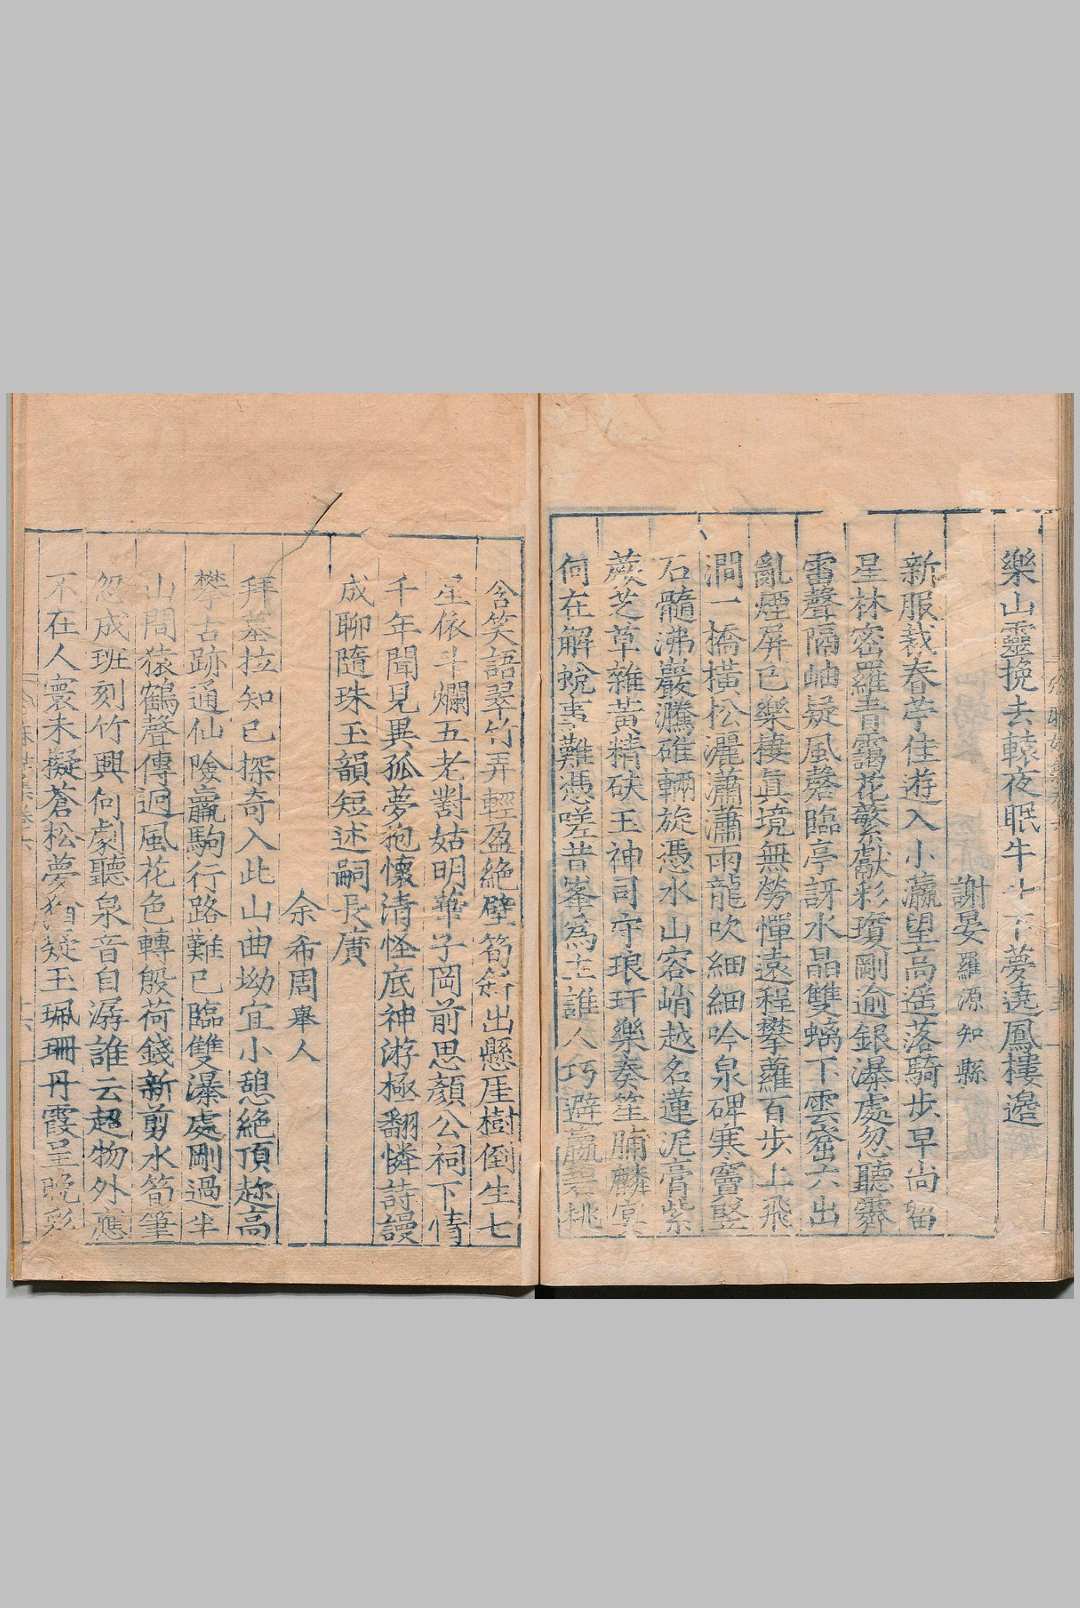 樂山靈挽去轅夜眠牛斗下夢遶鳳樓邊
謝晏羅源知縣
新服裁春苧佳遊入小瀛望高遥落騎步早尚
星林密羅青靄花繁獻彩瓊剛逾銀瀑處忽聽霽
雷聲隔岫疑風磬臨亭訝水晶雙螭下雲窟六出
亂煙屏已樂棲眞境無勞憚遠程攀蘿百步上飛
澗一橋橫松灑瀟瀟雨龍吹細細吟泉碑寒竇竪
石髓沸巖騰碓輛旋憑水山容峭越名蓮泥膏紫
蕨芝草雜黃精砆玉神司守琅玕樂奏笙脯麟
何在解蛻事難憑嗟昔峯爲主誰人巧避嬴碧桃
含笑語翠竹弄輕盈絶壁筍斜出懸厓樹倒生七
星依斗爛五老對姑明華子岡前思顏公祠下情
千年聞見異孤夢抱懷清怪底神游極翻憐詩謾
成聊隨珠玉韻短述嗣長賡
余希周舉人
拜墓拉知已探奇入此山曲坳宜小憩絶頂趂高
攀古跡通仙險羸駒行路難已臨雙瀑處剛過半
山間猿鶴聲傳迥風花色轉殷荷錢新剪水筍筆
忽成班刻竹興何劇聽泉音自潺誰云超物外應
不在人寰未擬蒼松夢猶疑玉珮珊丹霞呈晚彩